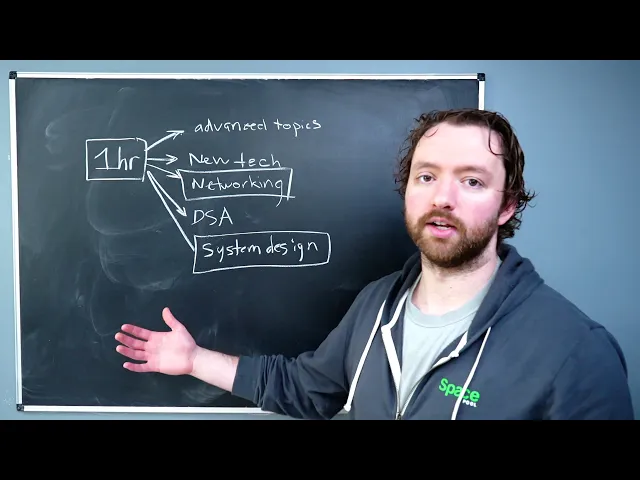 1hr
advanced topics
New tech
Networking
DSA
System design
space
POOL